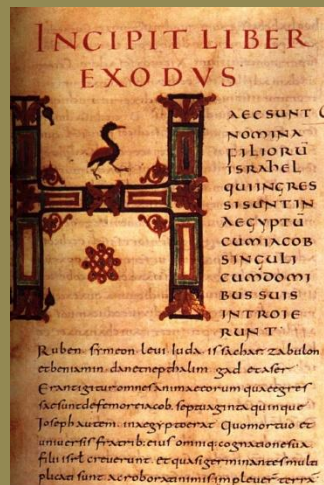 INCIPIT LIBER
EXODVS
HAEC SUNT
NOMINA
FILIORŪ
ISRAHEL
QUI INGRES
SI SUNT IN
AEGYPTŪ
CUM IACOB
SINGULI
CUM DOMI
BUS SUIS
INTROIE
RUNT
Ruben. symeon. leui. iuda. issachar. zabulon
et beniamin. dan et nepthalim. gad et aser
Erant igitur omnes animae eorum quae egres
sae sunt de femore iacob. septuaginta quinque
Ioseph autem in aegypto erat. Quo mortuo et
uniuersis fratrib; eius omniq; cognatione sua
filii isrl creuerunt. et quasi germinantes multi
plicati sunt. ac roborati nimis impleuer terrā